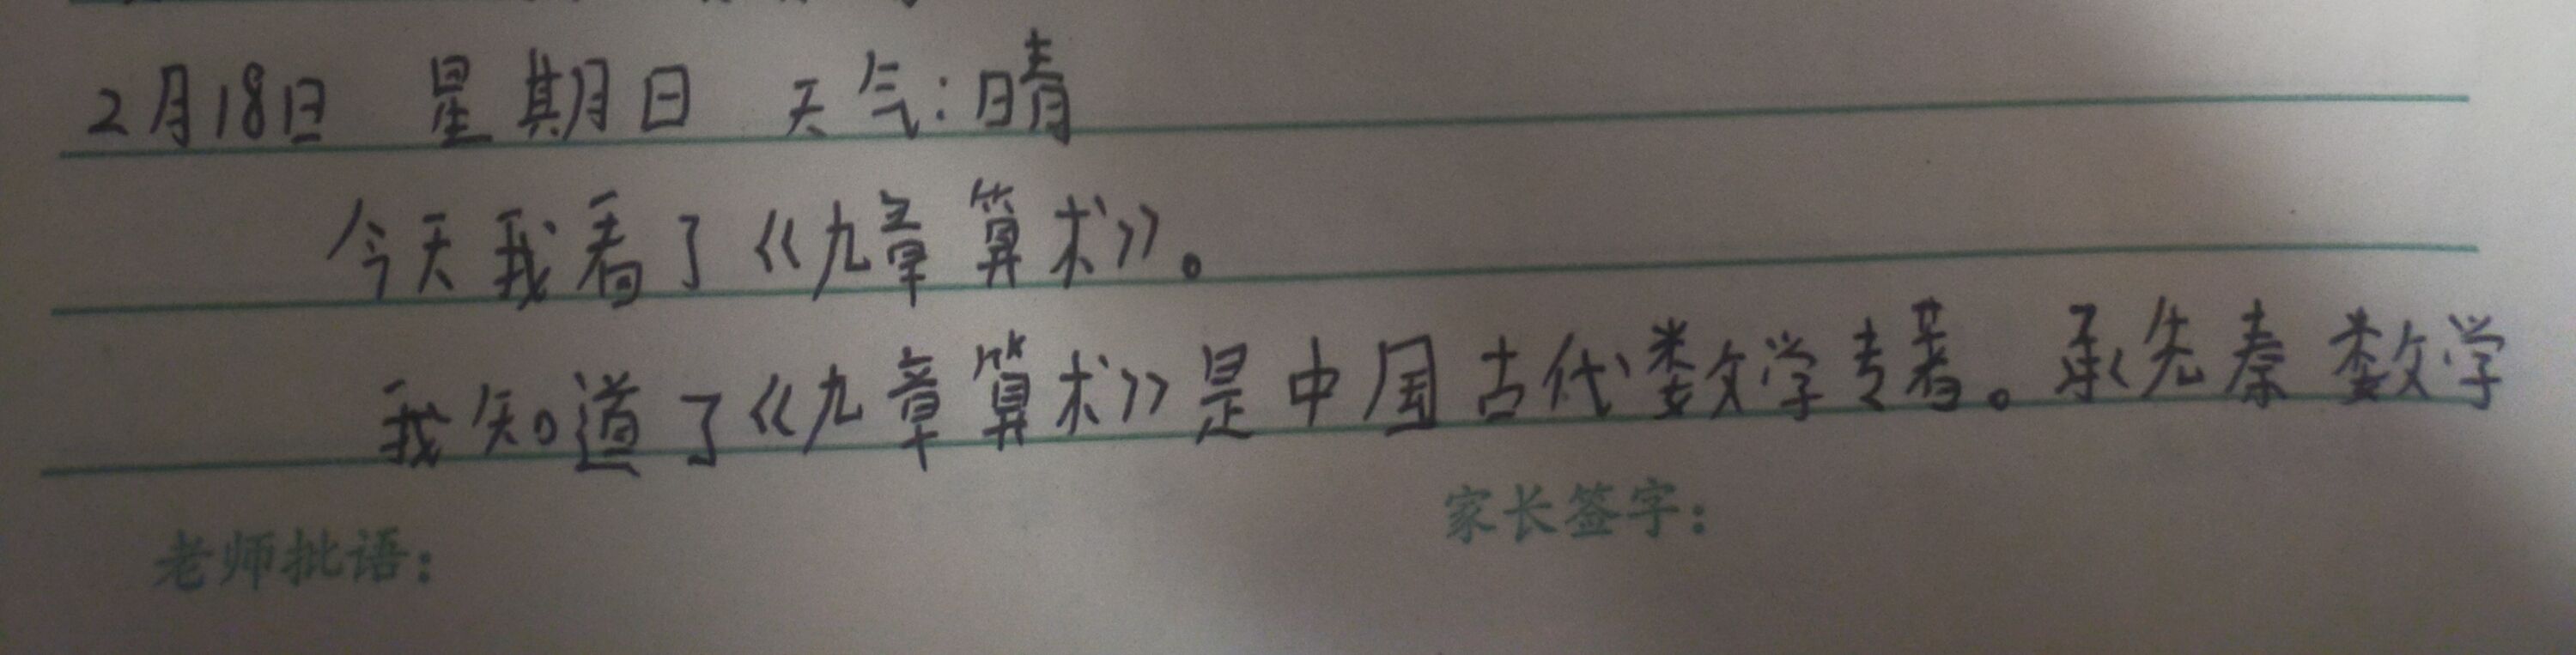 2月18日 星期日 天气:晴
今天我看了《九章算术》。
我知道了《九章算术》是中国古代数学专著。承先秦数学
家长签字:
老师批语: